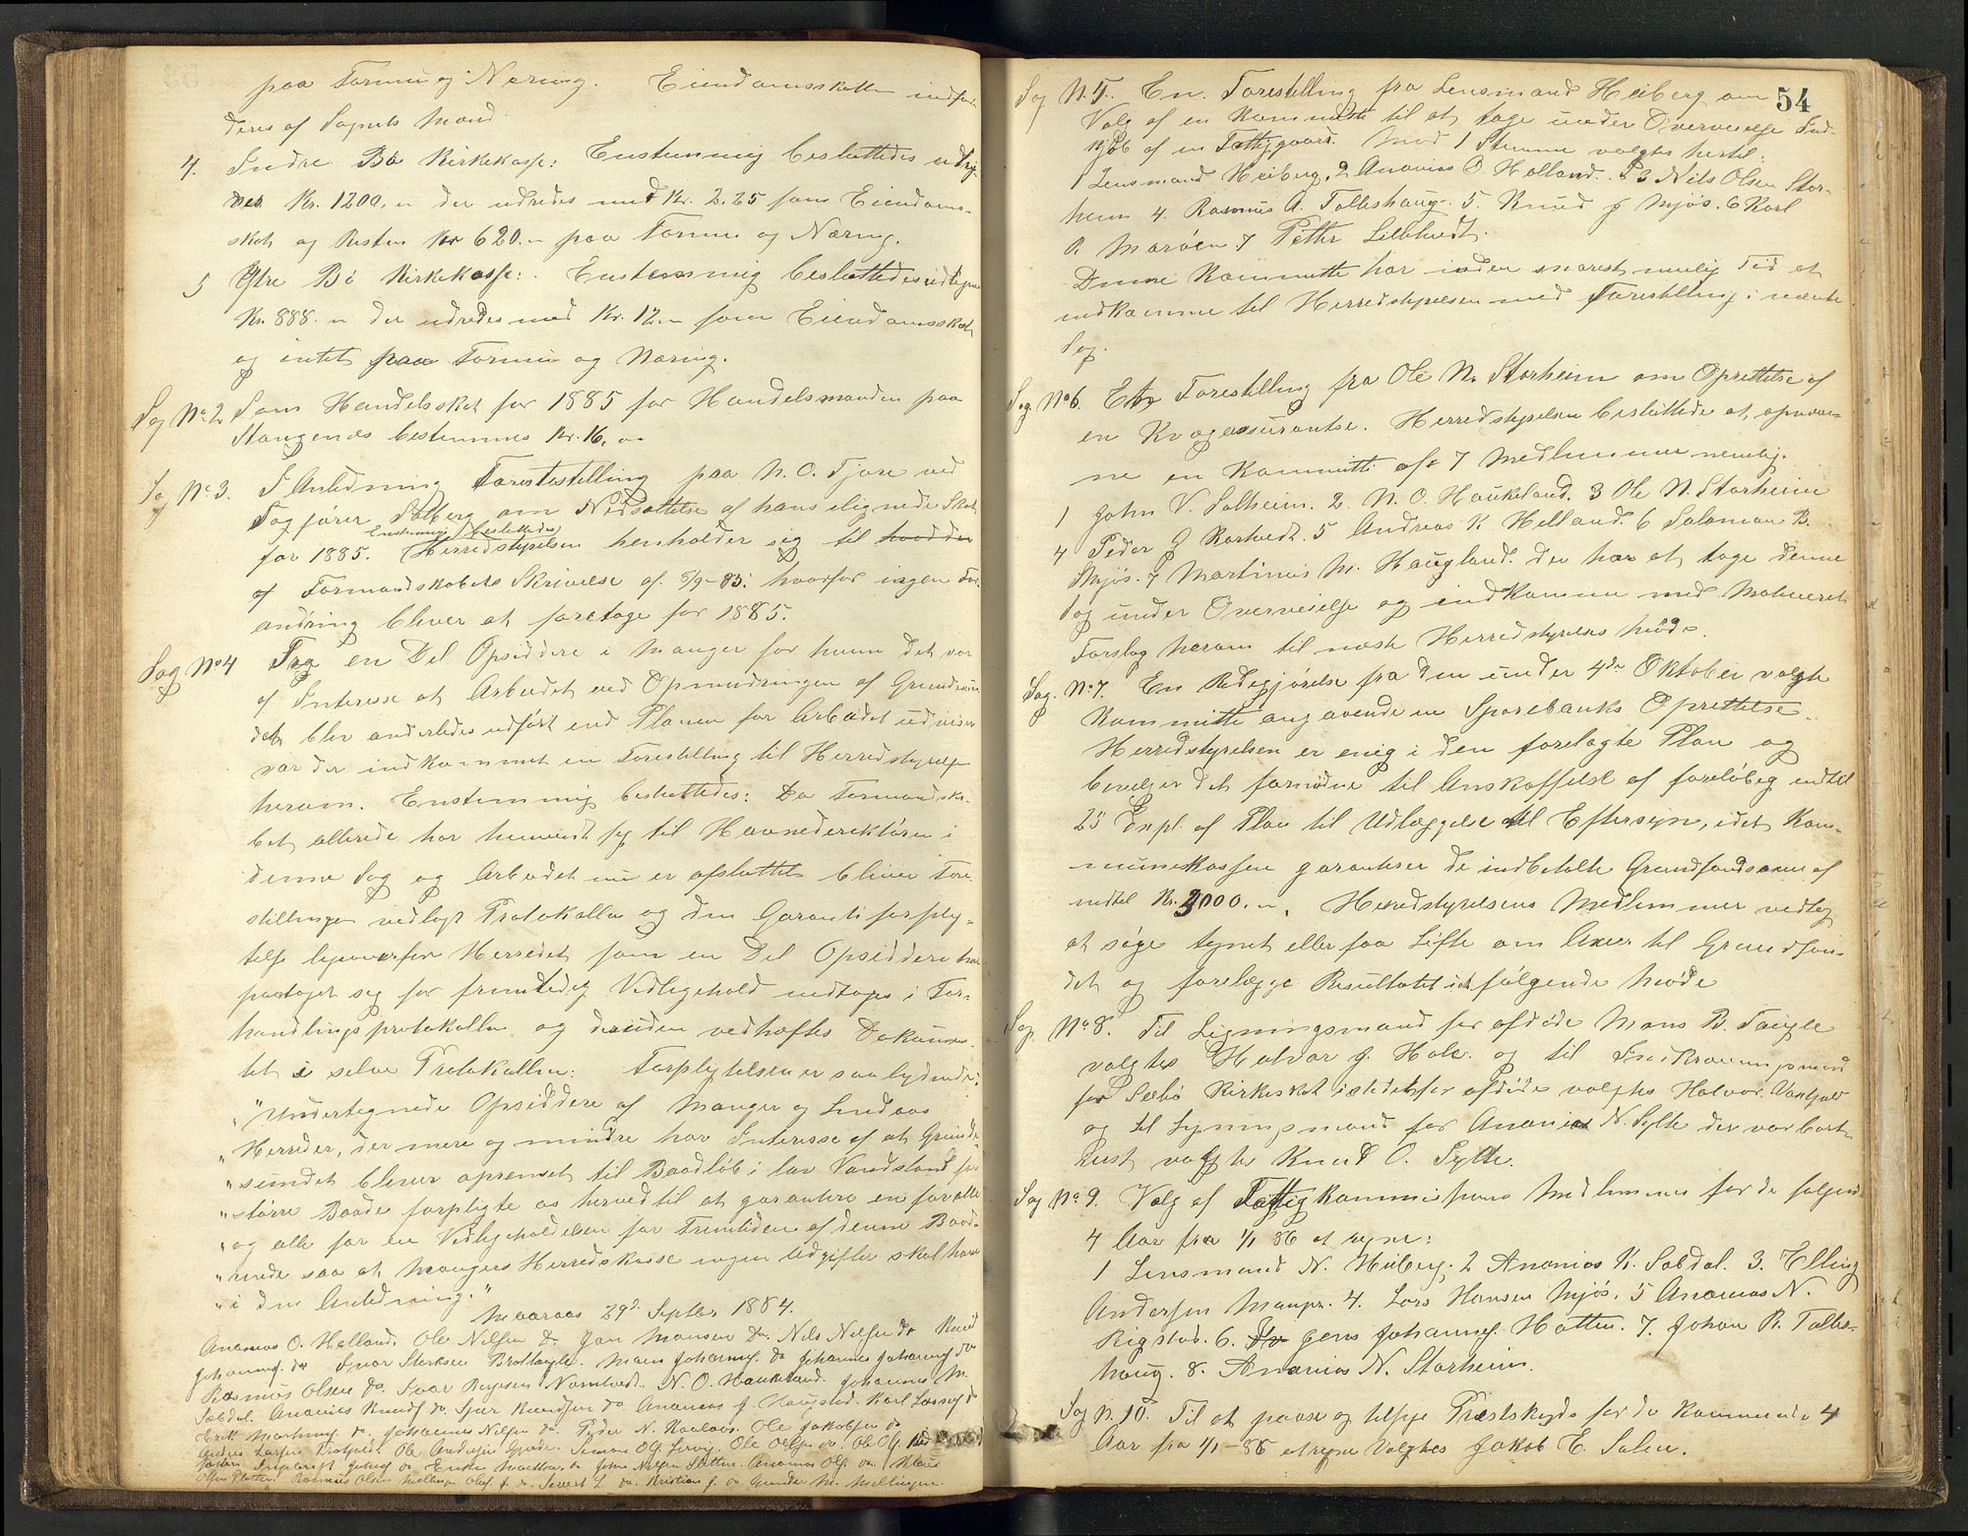 paa Formue og Næring. Eiendomsskatten indfor-
deres af Sognets Mænd
4. Indre Bø Kirkekasse: Enstemmig besluttedes udlig-
nes Kr. 1200,- der udredes med Kr. 2.25 som Eiendoms-
skat og Resten Kr 620.- paa Formue og Næring.
5 Ytre Bø Kirkekasse: Enstemmig besluttedes udlignes
Kr. 888.- der udredes med Kr. 12,- som Eiendomsskat
og intet paa Formue og Næring.
Sag No 2 Som Handelsskat for 1885 for Handelsmanden paa
Stangenes bestemmes Kr. 16,-
Sag No 3. I Anledning Forestestilling paa N. O. Fjære ved
Sagfører Solberg om Nedsættelse af hans ilignede Skat
enstemmig besluttedes
for 1885. Herredstyrelsen henholder sig til hvad der
af Formandskabets Skrivelse af 5/9-85: hvorfor ingen For-
andring bliver at foretage for 1885.
Sag No 4 Fra en Del Opsiddere i Manger for hvem det var
af Interesse at Arbeidet ved Opmudringen af Grundesun-
det blev anderledes udført end Planen for Arbeidet udviser
var der indkommet en Forestilling til Herredstyrelse
herom. Enstemmig besluttedes: Da Formandska-
bet allerede har henvendt sig til Havnedirektøren i
denne Sag og Arbeidet nu er afsluttet bliver Fore-
stillingen vedlagt Protokollen og den Garanti forply-
telse ligeoverfor Herredet som en Del Opsiddere har
paataget sig for fremtidig Vedligehold indtages i For-
handlingsprotokollen og desuden vedhæftes Dokumen-
tet i selve Protokollen: Forplytelsen er saa lydende:
"Undertegnede Opsiddere af Manger og Lindaas
"Herreder, der mere og mindre har Interesse af at Grunde-
"sundet bliver oprenset til Baadløb i lav Vandstand for
"større Baade forpligte os herved til at garantere en for alle
"og alle for en Vedligeholdelsen for Fremtiden af denne Baad-
"rende saa at Mangers Herredskasse ingen Udgifter skal have
"i den Anledning."
Maaraas 29d Septbr 1884.
Ananias O. Helland. Ole Nilsen do. Jan Monsen do. Nils Nilsen do Knud
Johannes. do Ivar Sterksen Brottayle. Mons Johannes. do Johannes Johannes do
Rasmus Olsen do. Ivar Børgesen Namtvedt. N. O. Haukeland. Johannes M.
Sæbdal. Ananias Knuds do. Sjur Knudsen do. Ananias J Haugstad. Karl Larsen do
Erik Martinus do. Johannes Nilsen do. Peder N. Kaalaas. Ole Jakobsen do
Ole Andersen Gjerde. Simon Ols. Ole Olsen do. Ole Ols.
Ananias Ols. do. Klaus
Olsen Sletten. Rasmus Olsen Mellingen Oluf J. do. Sivert L. do. Kristian J. do Gunder M. Mellingen.
54
Sag N. 5. En Forestilling fra Lensmand Heiberg om
Valg af en Kommitte til at tage under Overveielse Ind-
kjøb af en Fattiggaard. Med 1 Stemme valgtes hertil:
1 Lensmand Heiberg, 2 Ananias O. Helland. 3 Nils Olsen Stor-
heim 4. Rasmus A. Tollehaug. 5. Knud J Mjøs. 6 Karl
R. Marøen 7 Petter Lilletvedt.
Denne Kommitte har inden snarest mulig Tid at
indkomme til Herredstyrelsen med Forestilling i nævnte
Sag.
Sag. No 6. En Forestilling fra Ole N. Storheim om Oprettelse af
en Kvægassurantse. Herredstyrelsen besluttede at, opnæv-
ne en Kommitti af 7 Medlemmer nemlig.
1 John V. Solheim. 2. N. O. Haukeland. 3 Ole N. Storheim
4 Peder J Rostvedt. 5 Andreas K Helland. 6 Salamon B.
Mjøs. 7 Martinus M. Haugland. der har at tage denne
Sag under Overveielse og indkomme med Motiveret
Forslag herom til næste Herredstyrelses Møde.
Sag. No 7. En Redegjørelse fra den under 4de Oktober valgte
Kommitte angaaende en Sparebanks Oprettelse.
Herredstyrelsen er enig i den forelagte Plan og
bevelger det fornødne til Anskaffelse af foreløbig indtil
25 Expl. af Plan til Udlæggelse til Eftersyn, idet Kom-
munekassen garanterer de indbetalte Grundfondsaxer af
indtil Kr. 3000.-. Herredstyrelsens Medlemmer vedtog
at søge tegnet eller faa Løfte om Axier til Grundfon-
det og forelægge Resultatet i et følgende Møde
Sag. No 8. Til Ligningsmand for afdøde Mons B. Taugle
valgtes Halvor J. Hole. og til Indkrævningsmand
for Sæbø Kirkeskat istedetfor afdøde valgtes Halvor
og til Ligningsmand for Ananias N. Sylte der var bort-
reist valgtes Knud O. Sylte.
Sag No 9. Valg af Fattigkommissions Medlemmer for de følgende
4 Aar fra 1/1 86 at regne:
1 Lensmand N. Heiberg. 2 Ananias K. Sæbdal. 3. Elling
Andersen Manger. 4. Lars Hansen Mjøs. 5 Ananias N.
Rigstad. 6. Jens Johannes. Hatten. 7. Johan R. Tolle-
haug. 8. Ananias N. Storheim.
Sag N. 10. Til at paase og tilsige Præstskyds for de kommende 4
Aar fra 1/1-86 at regne valgtes Jakob E. Solen.